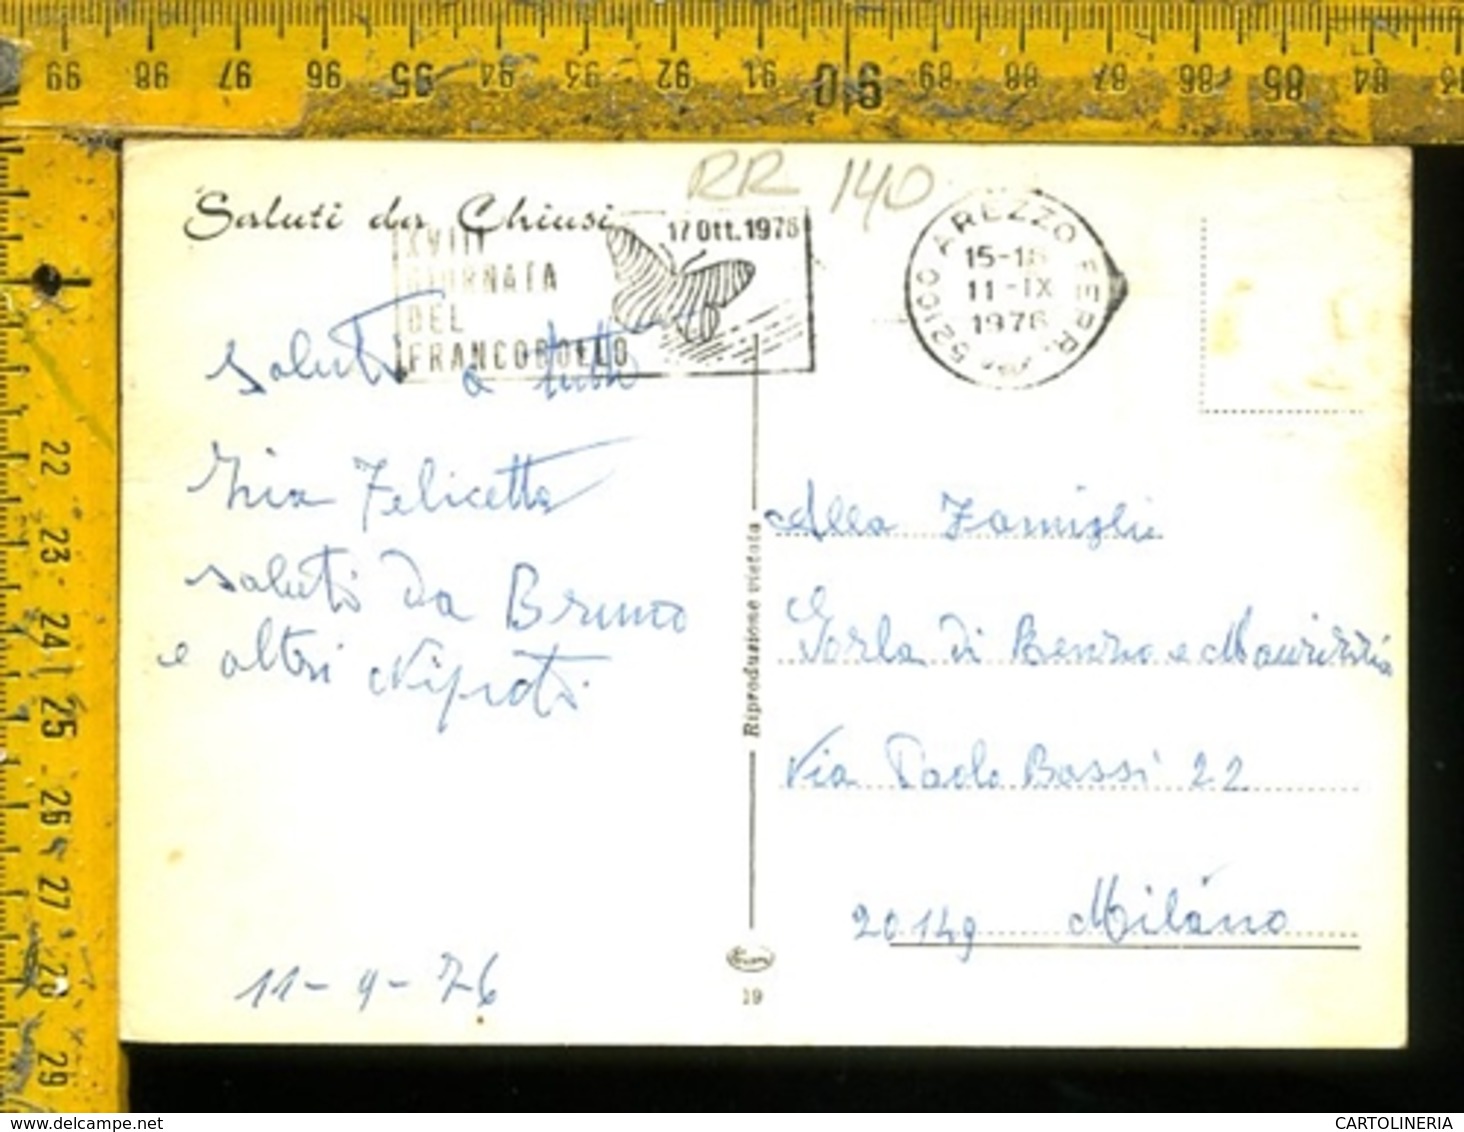 99 98 97 96 95 94 93 92 91 90 89 88 87 86 85 84
RR 140
Saluti da Chiusi
XVIII
GIORNATA
DEL
FRANCOBOLLO
17 Ott. 1976
52100 AREZZO FERR.
15-18
11-IX
1976
Saluti a tutti
Zia Felicetta
saluti da Bruno
e altri Nipoti
11-9-76
Riproduzione vietata
19
Alla Famiglia
Gorla di Renzo e Maurizia
Via Paolo Bassi 22
20149 Milano
22 23 24 25 26 27 28 29
www.delcampe.net
CARTOLINERIA